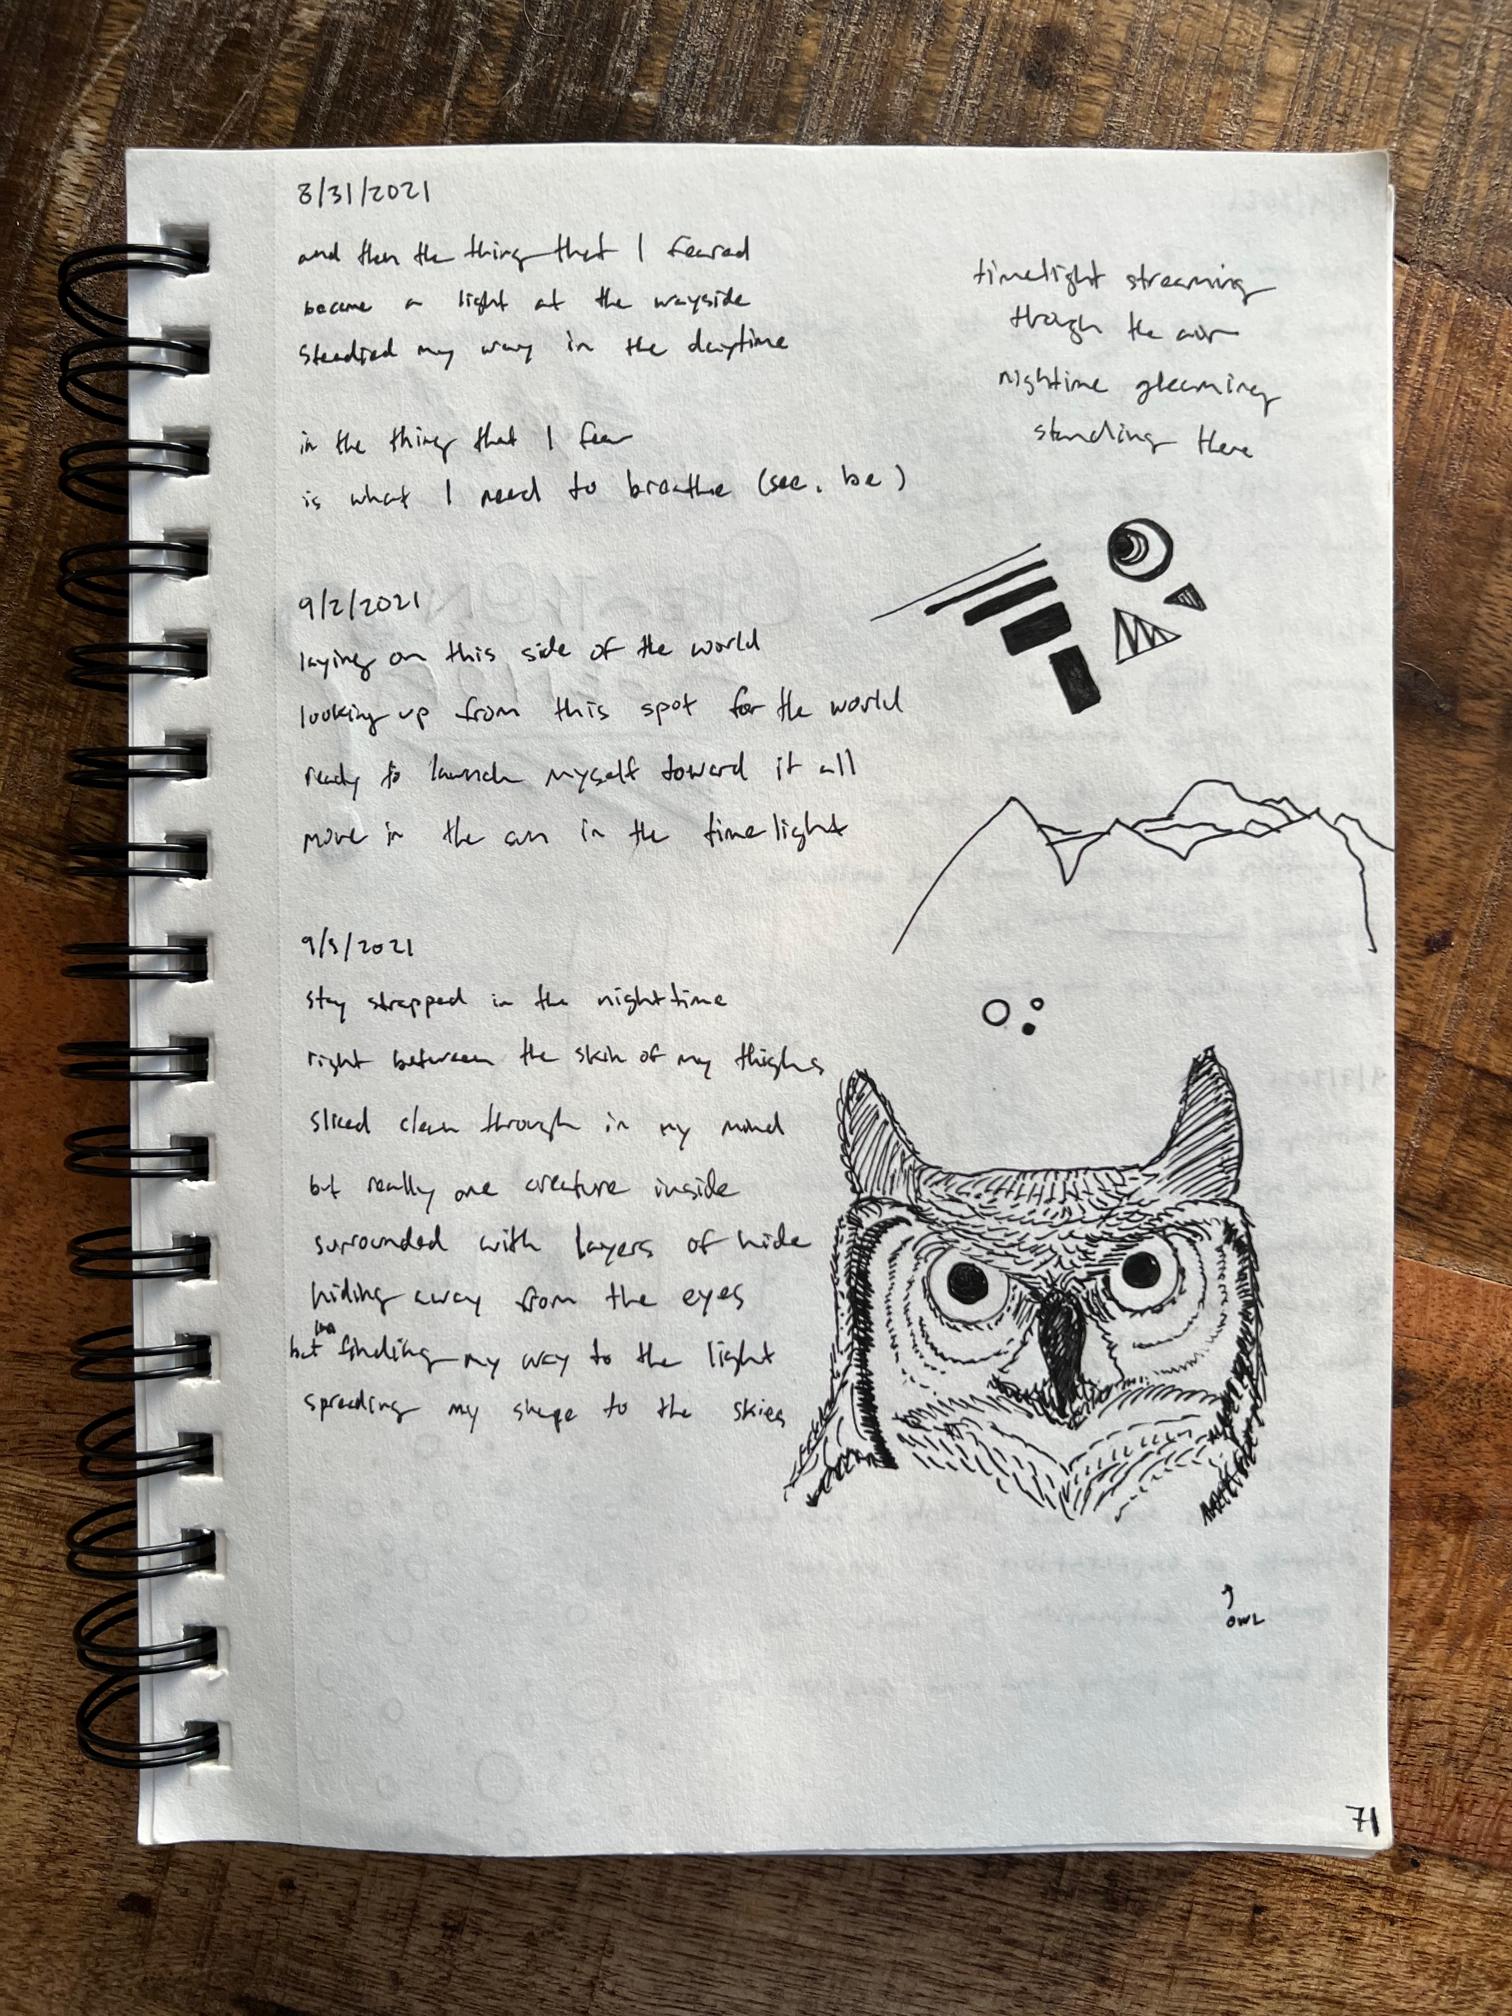 8/31/2021
and then the thing that I feared
became a light at the wayside
steadied my way in the daytime
in the thing that I fear
is what I need to breathe (see, be)
timelight streaming
through the air
nightime gleaming
standing there
9/2/2021
laying on this side of the world
looking up from this spot for the world
ready to launch myself toward it all
move in the sun in the timelight
9/5/2021
stay strapped in the nighttime
right between the skin of my thighs
sliced clean through in my mind
but really one creature inside
surrounded with layers of hide
hiding away from the eyes
but finding my way to the light
spreading my shape to the skies
OWL
71